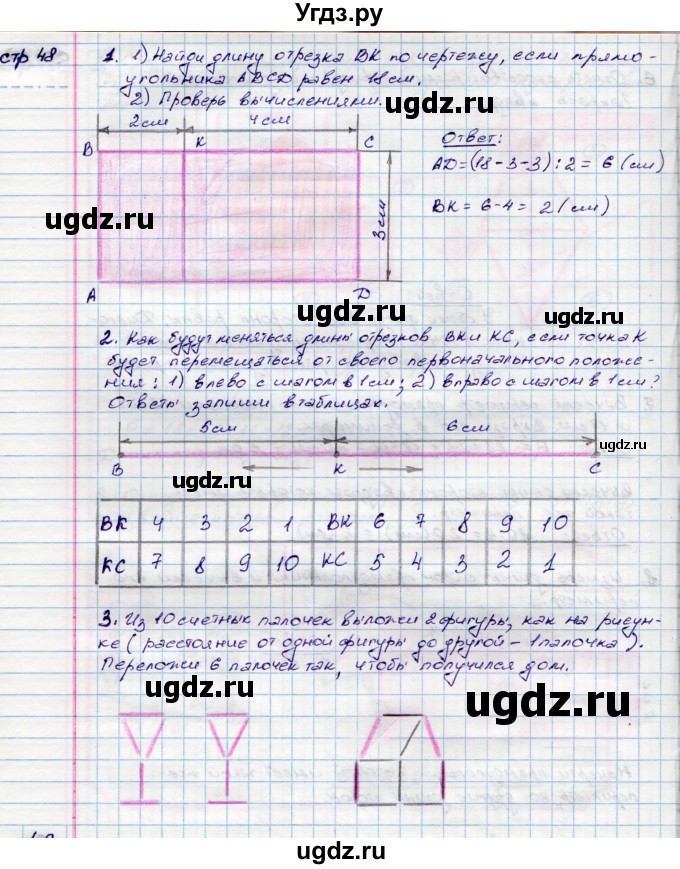 Угдз.ру
стр 48
1. 1) Найди длину отрезка ВК по чертежу, если прямо-
угольника ABCD равен 18 см.
2) Проверь вычислениями.
2 см
4 см
В
К
С
3 см
А
D
Ответ:
AD = (18 - 3 - 3) : 2 = 6 (см)
ВК = 6 - 4 = 2 (см)
ugdz.ru
ugdz.ru
ugdz.ru
2. Как будут меняться длины отрезков ВК и КС, если точка К
будет перемещаться от своего первоначального положе-
ния: 1) влево с шагом в 1 см; 2) вправо с шагом в 1 см?
Ответы запиши в таблицах.
5 см
6 см
В
К
С
ugdz.ru
ugdz.ru
ВК 4 3 2 1 ВК 6 7 8 9 10
КС 7 8 9 10 КС 5 4 3 2 1
ugdz.ru
ugdz.ru
3. Из 10 счетных палочек выложи 2 фигуры, как на рисун-
ке (расстояние от одной фигуры до другой - 1 палочка).
Переложи 6 палочек так, чтобы получился дом.
ugdz.ru
ugdz.ru
ugdz.ru
ugdz.ru
ugdz.ru